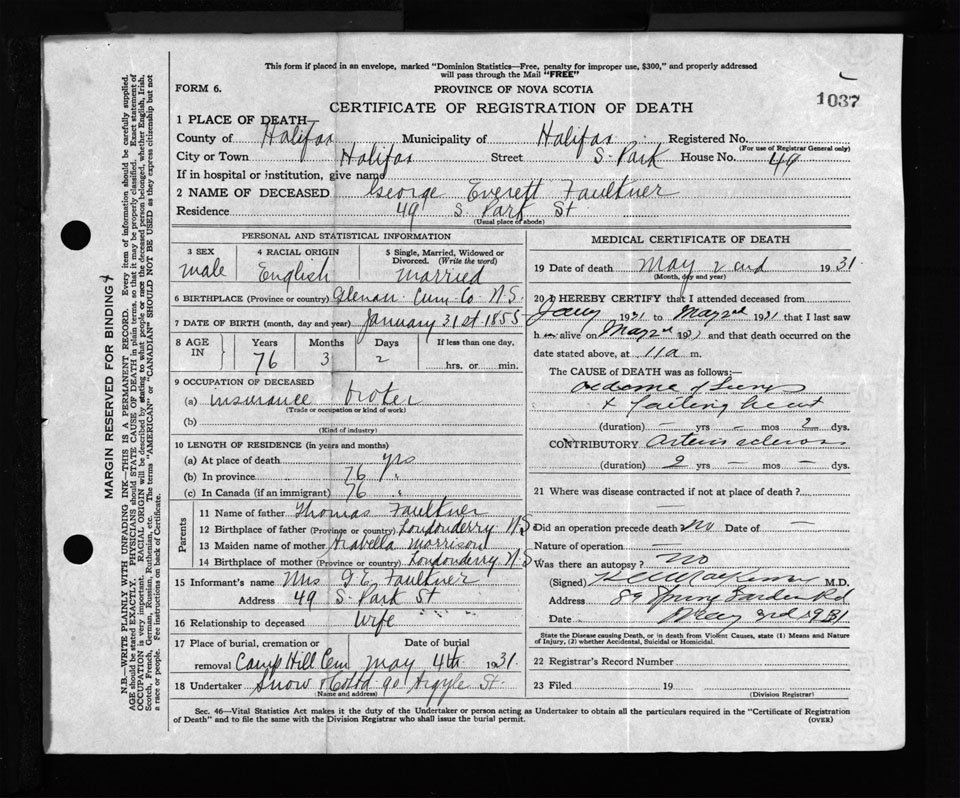 This form if placed in an envelope, marked "Dominion Statistics—Free, penalty for improper use, $300," and properly addressed
will pass through the Mail "FREE"
FORM 6.
PROVINCE OF NOVA SCOTIA
1037
CERTIFICATE OF REGISTRATION OF DEATH
1 PLACE OF DEATH
County of Halifax Municipality of Halifax Registered No.
(For use of Registrar General only)
City or Town Halifax Street S. Park House No. 49
If in hospital or institution, give name
2 NAME OF DECEASED George Everett Faulkner
Residence 49 S. Park St
(Usual place of abode)
PERSONAL AND STATISTICAL INFORMATION
3 SEX 4 RACIAL ORIGIN 5 Single, Married, Widowed or
Divorced. (Write the word)
male English married
6 BIRTHPLACE (Province or country) Cum. Co. N.S.
7 DATE OF BIRTH (month, day and year) January 31st 1855
8 AGE IN Years Months Days If less than one day,
76 3 2 hrs. or min.
9 OCCUPATION OF DECEASED
(a) insurance broker
(Trade or occupation or kind of work)
(b)
(Kind of industry)
10 LENGTH OF RESIDENCE (in years and months)
(a) At place of death yrs
(b) In province 76 "
(c) In Canada (if an immigrant) 76 "
Parents
11 Name of father Thomas Faulkner
12 Birthplace of father (Province or country) Londonderry N.S
13 Maiden name of mother Arabella Morrison
14 Birthplace of mother (Province or country) Londonderry N.S
15 Informant's name Mrs G. E. Faulkner
Address 49 S. Park St
16 Relationship to deceased Wife
17 Place of burial, cremation or Date of burial
removal Camp Hill Cem May 4th 1931.
18 Undertaker Snow 90 Argyle St.
(Name and address)
MEDICAL CERTIFICATE OF DEATH
19 Date of death May 2nd 1931.
(Month, day and year)
20 I HEREBY CERTIFY that I attended deceased from
Jany 1931 to May 2nd 1931 that I last saw
h alive on May 2nd 1931 and that death occurred on the
date stated above, at 11 a m.
The CAUSE of DEATH was as follows:—
Oedema of Lungs
+ failing heart
(duration) — yrs — mos 2 dys.
CONTRIBUTORY Arterio sclerosis
(duration) 2 yrs — mos — dys.
21 Where was disease contracted if not at place of death?
Did an operation precede death No Date of —
Nature of operation —
Was there an autopsy? No
(Signed) M.D.
Address 89 Spring Garden Rd
Date May 3rd 1931
State the Disease causing Death, or in death from Violent Causes, state (1) Means and Nature
of Injury, (2) whether Accidental, Suicidal or Homicidal.
22 Registrar's Record Number
23 Filed 19
(Division Registrar)
Sec. 46—Vital Statistics Act makes it the duty of the Undertaker or person acting as Undertaker to obtain all the particulars required in the "Certificate of Registration
of Death" and to file the same with the Division Registrar who shall issue the burial permit.
(OVER)
MARGIN RESERVED FOR BINDING
N.B.—WRITE PLAINLY WITH UNFADING INK—THIS IS A PERMANENT RECORD. Every item of information should be carefully supplied.
AGE should be stated EXACTLY. PHYSICIANS should STATE CAUSE OF DEATH in plain terms, so that it may be properly classified. Exact statement of
OCCUPATION is very important. RACIAL ORIGIN will be described by stating to what people or race the deceased person belonged, whether English, Irish,
Scotch, French, German, Russian, Ruthenian, etc. The terms "AMERICAN" or "CANADIAN" SHOULD NOT BE USED as they express citizenship but not
a race or people. See instructions on back of Certificate.